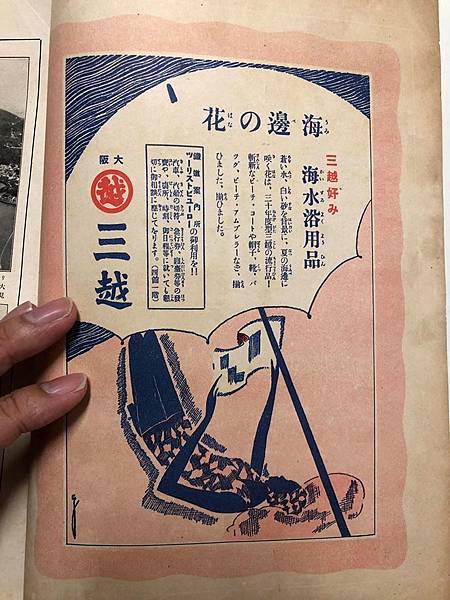 海邊の花
三越好み
海水浴用品
蒼い水、白い砂を背景に、夏の海邊に
咲く花は、三十年度三越の流行品！
斬新なビーチ・コートや帽子、靴、バ
ッグ、ビーチ・アムブレラーなど、揃
ひました、揃ひました。
鐵道案内所の御利用を!!
ツーリストビューロー
汽車、汽船の切符、急行券、寝臺券等の發
賣や、賃所、時刻、御日程等に就いても懇
切に御相談に應じて をります。(西館一階)
大阪
越
三越